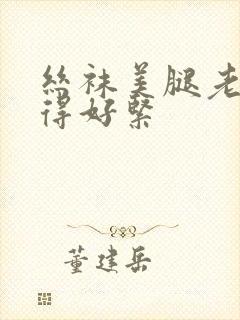 絲袜美腿老
得好緊
董建岳